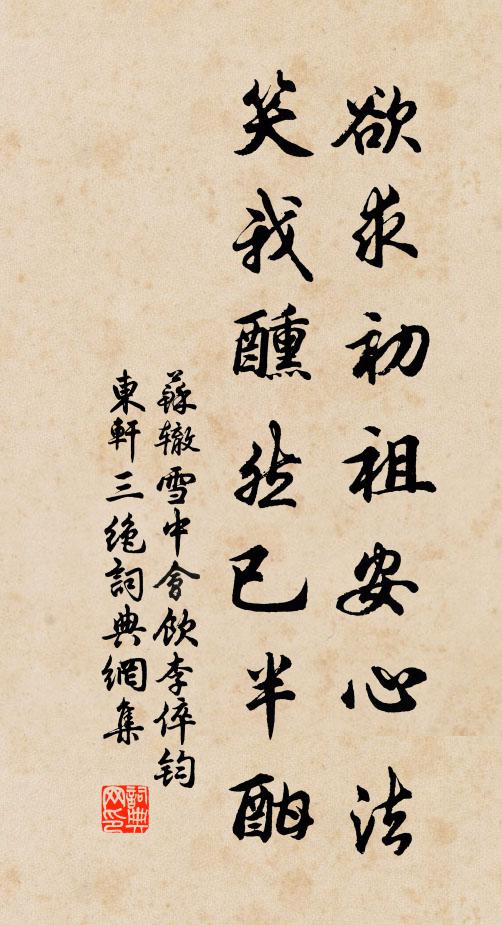 欲求初祖安心法
笑我醺然已半酣
蘇辙雪中會飲李倅钧
東軒三绝詞典網集
詞典网印